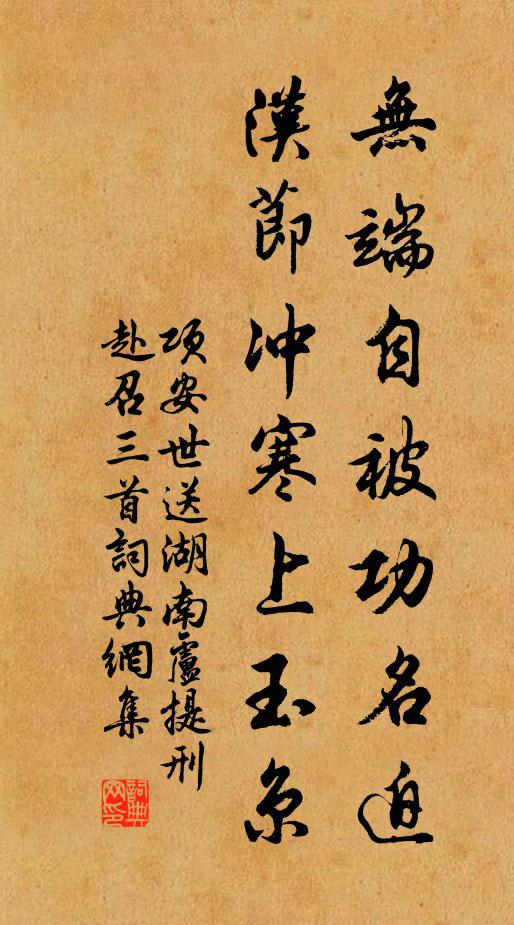 無端自被功名迫
漢節冲寒上玉京
項安世送湖南盧提刑
赴召三首詞典網集
詞典
网印